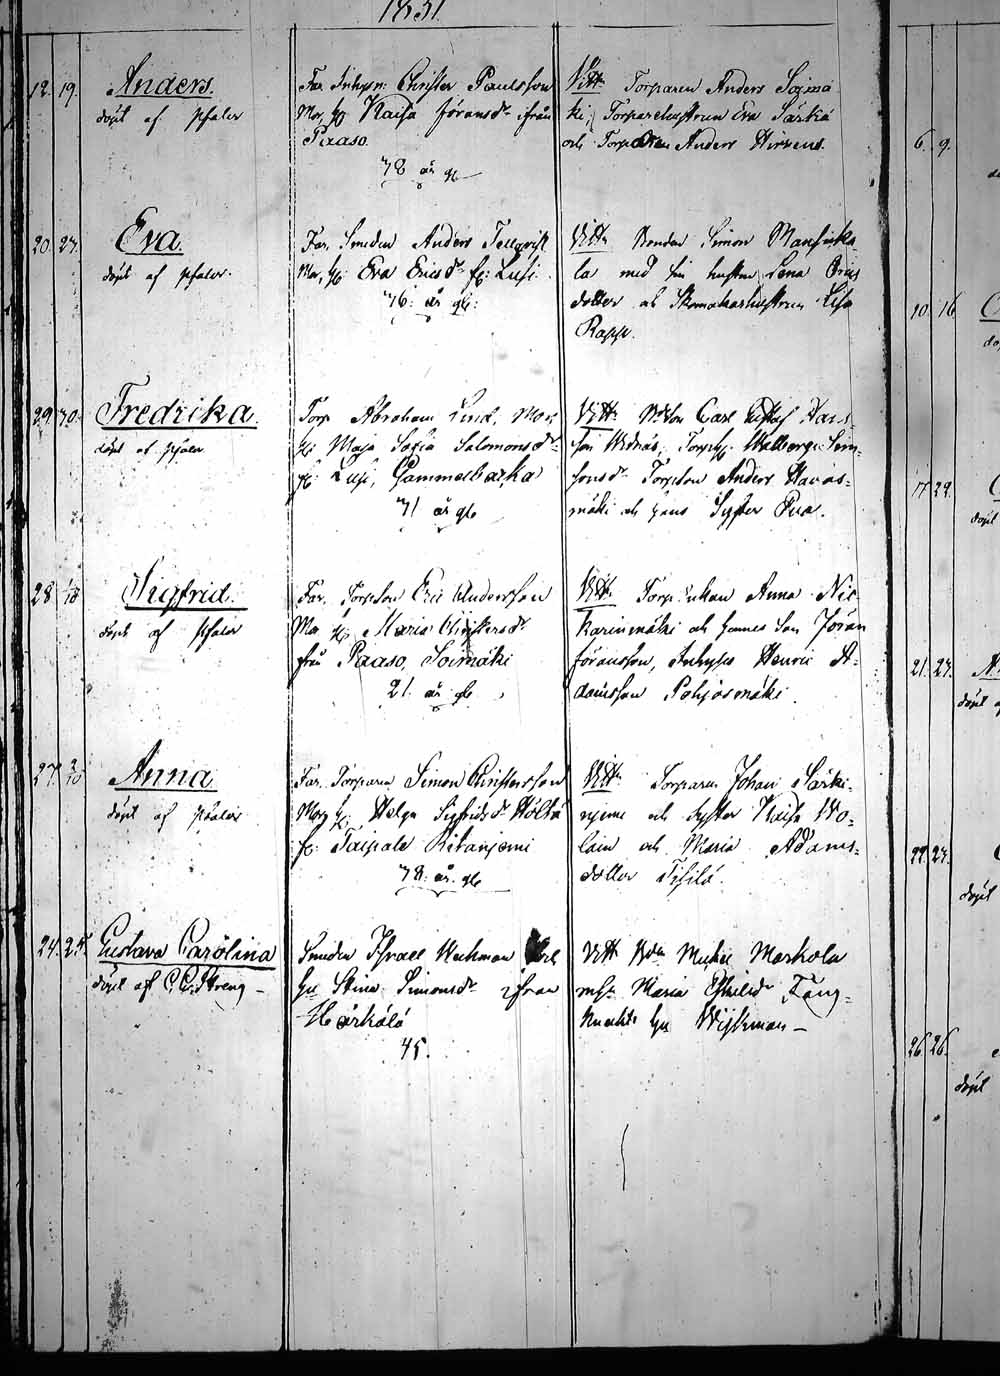 1831
12. 19. Anders.
döpt af Pfaler
Far Inhysn: Christer Paulsson
Mor, h. Kaisa Göransdr ifrån
Paaso.
28 år gl
Vitt. Torparen Anders Soimä
ki, Torparehustrun Eva Särkä
och Torparen Anders Hirvens.
20. 27. Eva.
döpt af Pfaler.
Far, Smeden Anders Tellqvist
Mor, h. Eva Ericsdr fr: Lusi
26: år gl:
Vitt. Bonden Simon Mansicka
la med sin hustru Lena Erics
dotter och Skomakarhustrun Lisa
Rapp.
29. 30. Fredrika.
döpt af Pfaler
Torp Abraham Lind, Mor,
h. Maja Sofia Salomonsdr
fr: Lusi, Gammelbacka
21 år gl
Vitt. Carl Gustaf Hans-
son Walborg Sim-
onsdr Torpson Anders Havas-
mäki och hans Syster Eva.
28 1/10 Sigfrid.
döpt af Pfaler
Far, Torpson Eric Andersson
Mor h. Maria Christersdr
från Paaso, Soimäki
21. år gl
Vitt. Torp Enkan Anna Nie
Karinmäki och hennes Son Jöran
Göransson, Inhyses Henric A-
damsson Pohjosmäki.
27 2/10 Anna
döpt af Pfaler
Far, Torparen Simon Christersson
Mor h. Helga Sigfridsdr Höltä
fr: Taipale Ritaniemi
28. år gl
Vitt. Torparen Johan Särki-
njemi och Syster Kaisa Wo-
lain och Maria Adams-
dotter
24. 25. Gustava Carolina
döpt af C. G. Streng -
Smeden Israel Weckman och
hu Stina Simonsdr ifrån
Härkälä
45.
Vitt Bdn Michel Markola
msk Maria Fång-
knekts hu Wijkman -
6. 9.
10. 16
17 29.
döpt
21. 27.
döpt
22. 27.
döpt
26. 26.
döpt